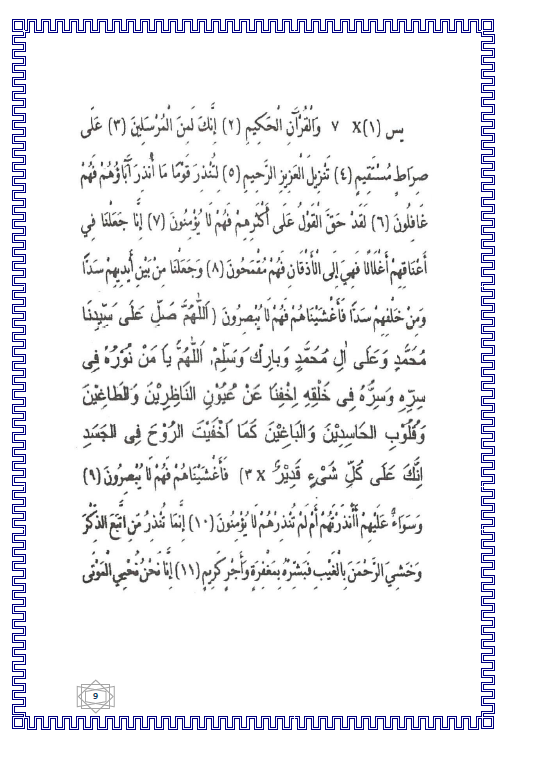 يس (١)X ٧ وَالْقُرْآنِ الْحَكِيمِ (٢) إِنَّكَ لَمِنَ الْمُرْسَلِينَ (٣) عَلَى
صِرَاطٍ مُسْتَقِيمٍ (٤) تَنْزِيلَ الْعَزِيزِ الرَّحِيمِ (٥) لِتُنْذِرَ قَوْمًا مَا أُنْذِرَ آبَاؤُهُمْ فَهُمْ
غَافِلُونَ (٦) لَقَدْ حَقَّ الْقَوْلُ عَلَى أَكْثَرِهِمْ فَهُمْ لَا يُؤْمِنُونَ (٧) إِنَّا جَعَلْنَا فِي
أَعْنَاقِهِمْ أَغْلَالًا فَهِيَ إِلَى الْأَذْقَانِ فَهُمْ مُقْمَحُونَ (٨) وَجَعَلْنَا مِنْ بَيْنِ أَيْدِيهِمْ سَدًّا
وَمِنْ خَلْفِهِمْ سَدًّا فَأَغْشَيْنَاهُمْ فَهُمْ لَا يُبْصِرُونَ ( اَللّٰهُمَّ صَلِّ عَلَى سَيِّدِنَا
مُحَمَّدٍ وَعَلَى اٰلِ مُحَمَّدٍ وَبَارِكْ وَسَلِّمْ, اَللّٰهُمَّ يَا مَنْ نُوْرُهُ فِى
سِرِّهِ وَسِرُّهُ فِى خَلْقِهِ اِخْفِنَا عَنْ عُيُوْنِ النَّاظِرِيْنَ وَالطَّاغِيْنَ
وَقُلُوْبِ الحَاسِدِيْنَ وَالبَاغِيْنَ كَمَا اَخْفَيْتَ الرُّوْحَ فِى الجَسَدِ
اِنَّكَ عَلَى كُلِّ شَىْءٍ قَدِيْرٌ X ٣) فَأَغْشَيْنَاهُمْ فَهُمْ لَا يُبْصِرُونَ (٩)
وَسَوَاءٌ عَلَيْهِمْ أَأَنْذَرْتَهُمْ أَمْ لَمْ تُنْذِرْهُمْ لَا يُؤْمِنُونَ (١٠) إِنَّمَا تُنْذِرُ مَنِ اتَّبَعَ الذِّكْرَ
وَخَشِيَ الرَّحْمَنَ بِالْغَيْبِ فَبَشِّرْهُ بِمَغْفِرَةٍ وَأَجْرٍ كَرِيمٍ (١١) إِنَّا نَحْنُ نُحْيِي الْمَوْتَى
9